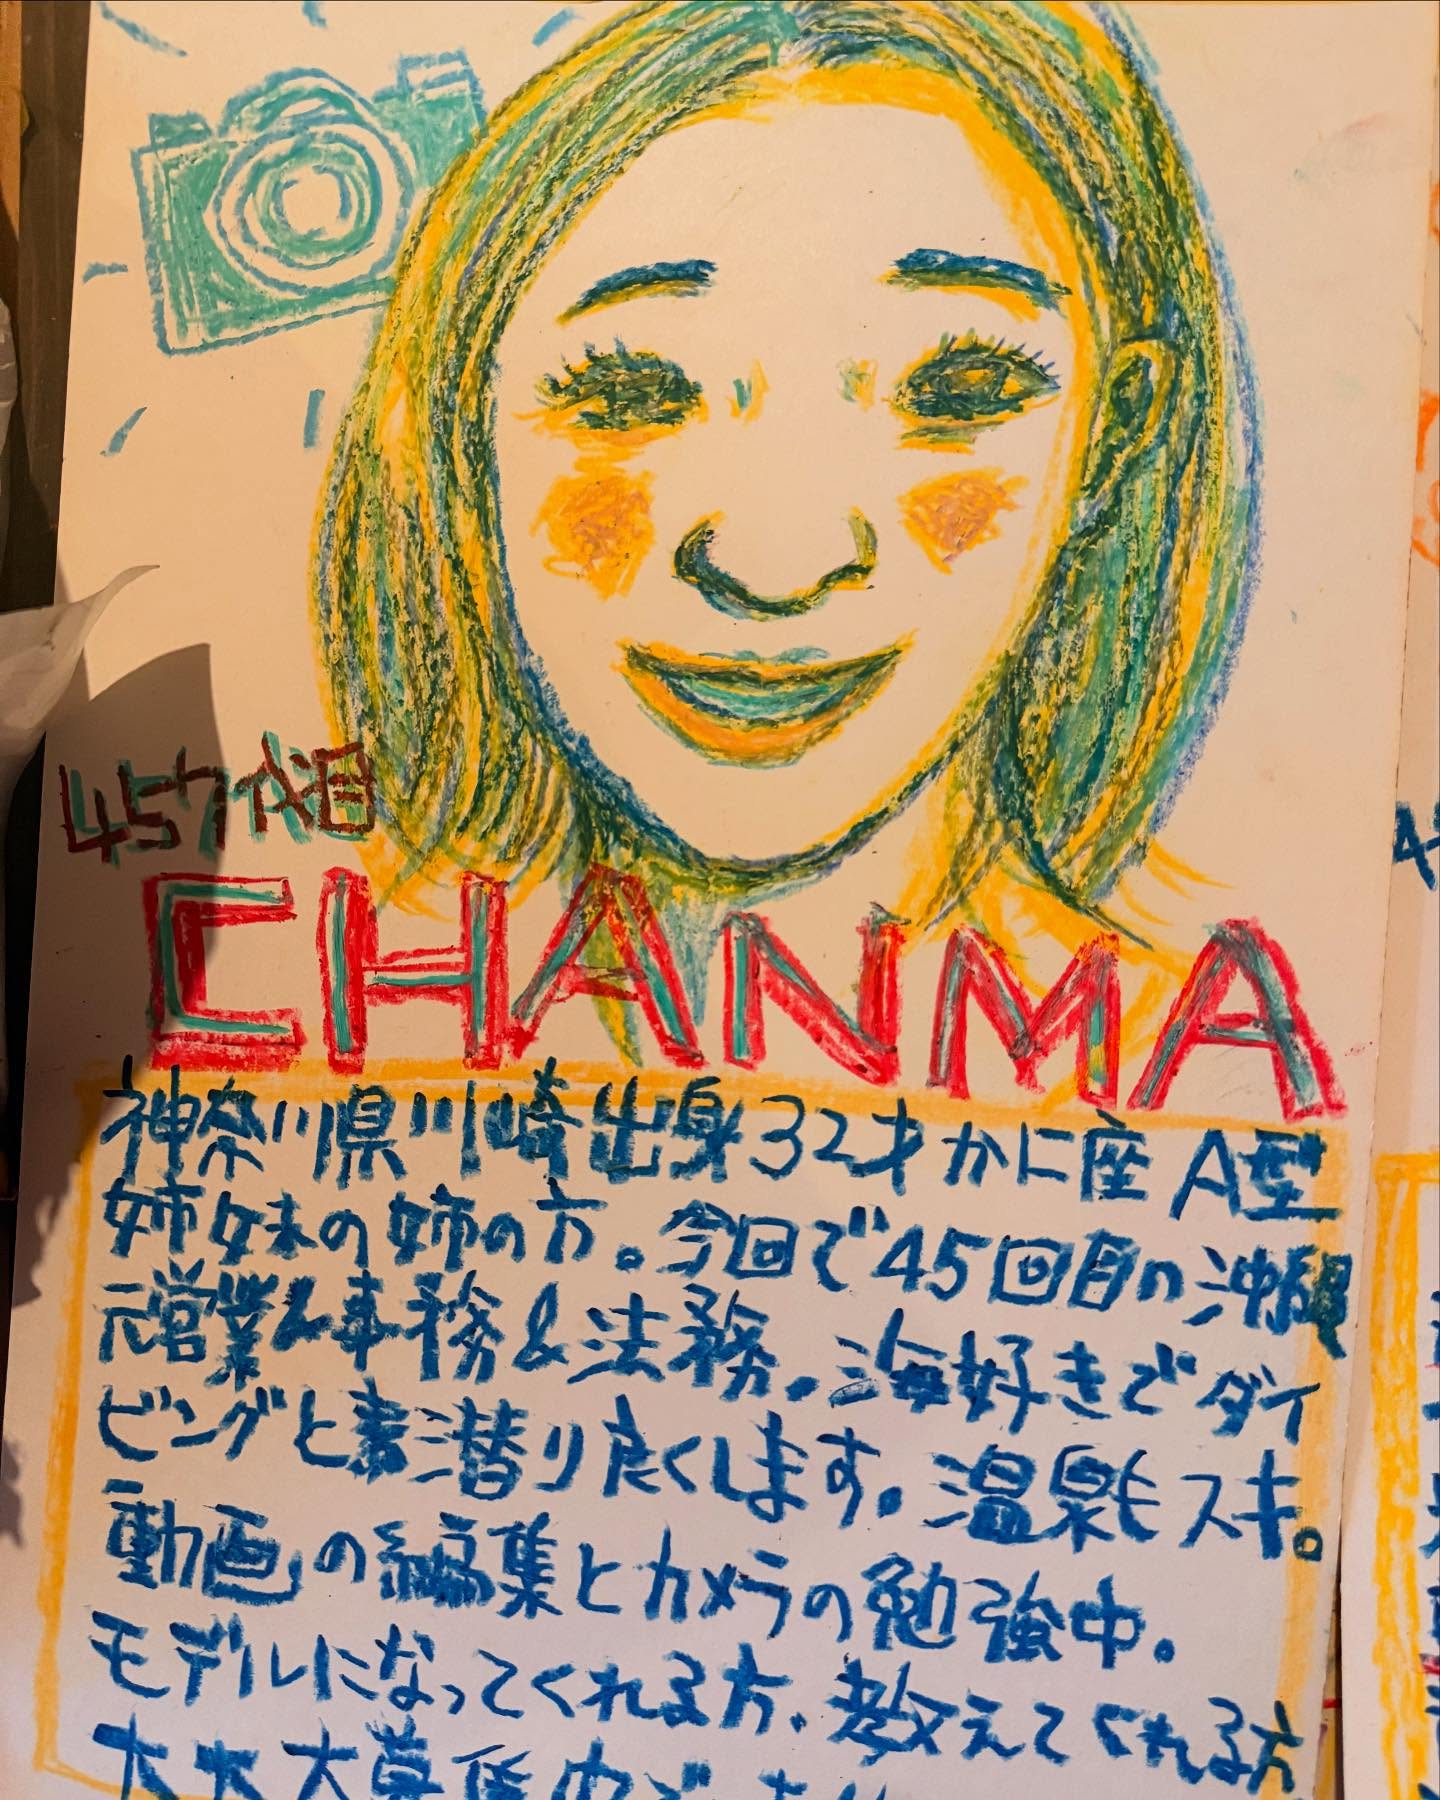 457代目
CHANMA
神奈川県川崎出身32才かに座 A型
姉妹の姉の方。今回で45回目の沖縄
元営業&事務&法務。海好きでダイ
ビングと素潜り良くします。温泉もスキ。
動画の編集とカメラの勉強中。
モデルになってくれる方、教えてくれる方
大大大募集中です